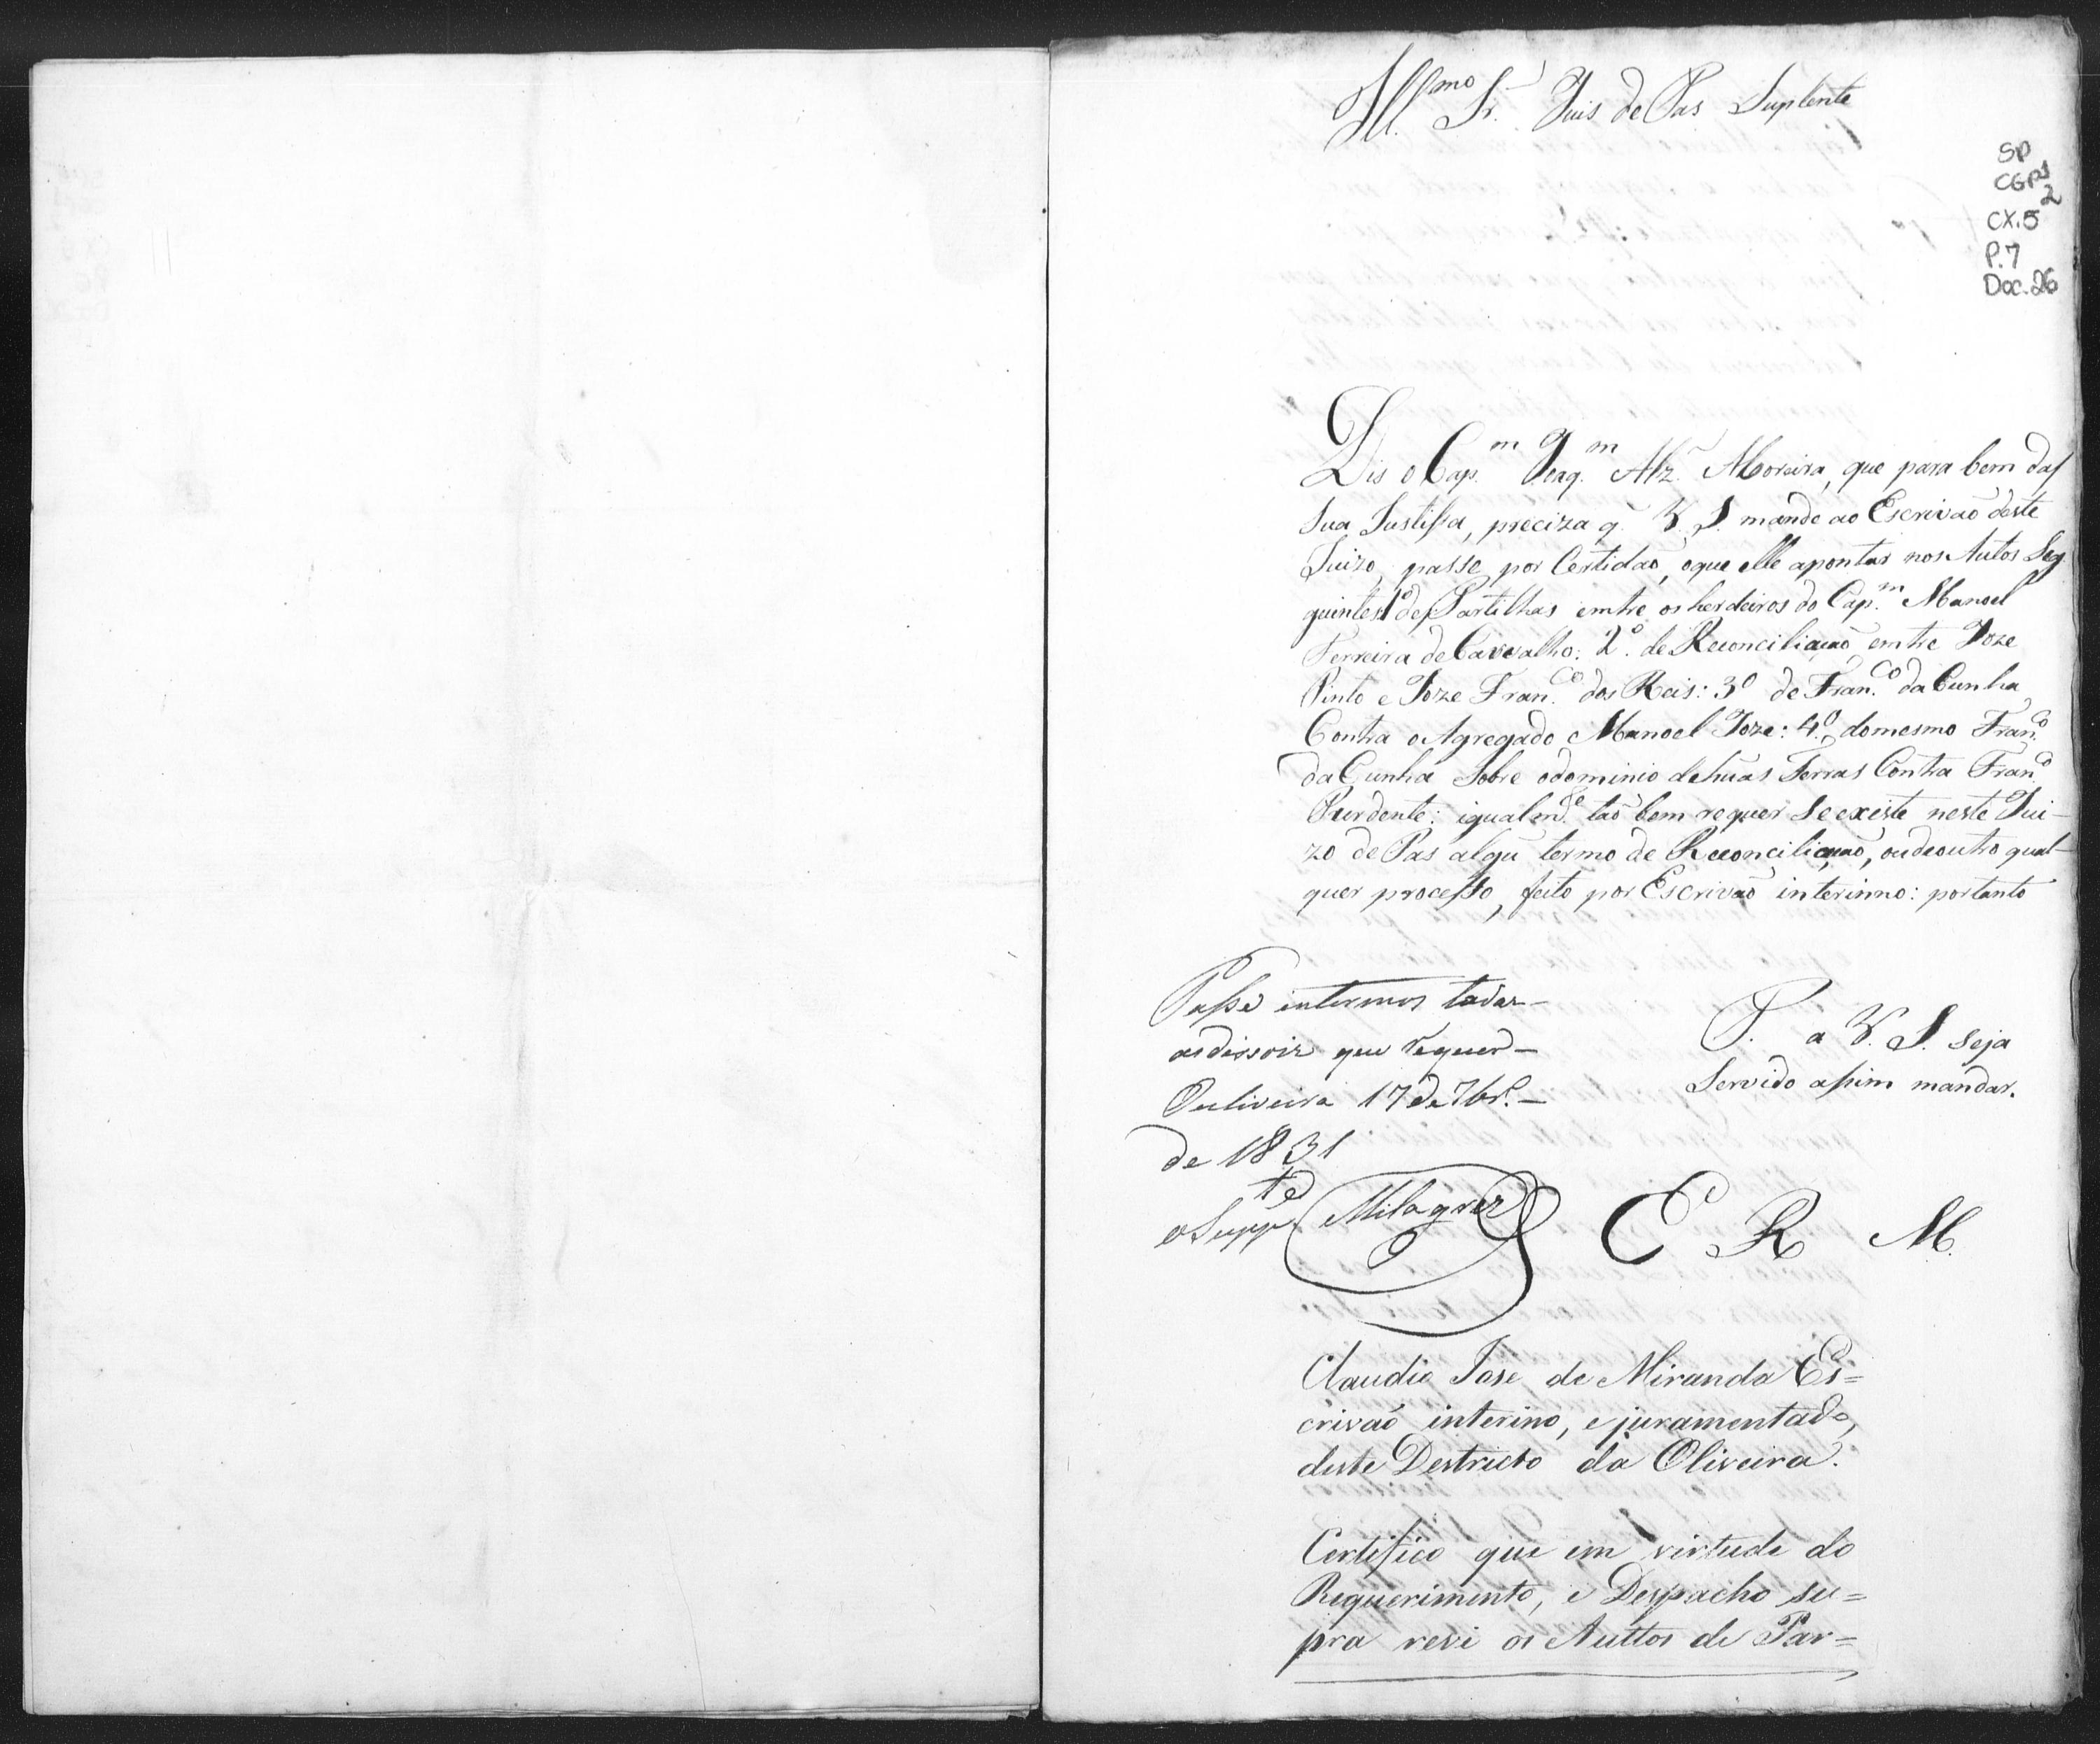 Ill.mo Sr. Juis de Pas Suplente
SP
CGP1
2
CX.5
P.7
Doc.26
Dis o Cap.m Joaq.m Alz. Moreira, que para bem da
Sua Justissa, preciza q. V. S. mande ao Escrivaõ deste
Juizo, passe por Certidaõ, oque elle apontar nos Autos Seg
guintes 1º de Partilhas emtre os herdeiros do Cap.m Manoel
Ferreira de Carvalho: 2º. de Reconciliaçaõ emtre Joze
Pinto e Joze Fran.co dos Reis: 3º de Fran.co da Cunha
Contra o Agregado Manoel Joze: 4º. domesmo Fran.co
da Cunha Sobre odominio dehũas Terras Contra Fran.co
Purdente: igualm.e taõ bem requer Se existe neste Jui-
zo de Pas algũ termo de Reconciliaçaõ, oudeoutro qual-
quer processo, feito por Escrivaõ interinno: portanto
P. a V. S. seja
Servido assim mandar.
Passe intermos todas
que requer
Ouliveira 17 de 7br.º
de 1831
o Supp.te Milagrez
E R M.
Claudio Jose de Miranda Es=
crivaõ interino, e juramentado,
deste Destricto da Oliveira.
Certifico que em virtude do
Requerimento, e Despacho su=
pra revi os Auttos de Par=